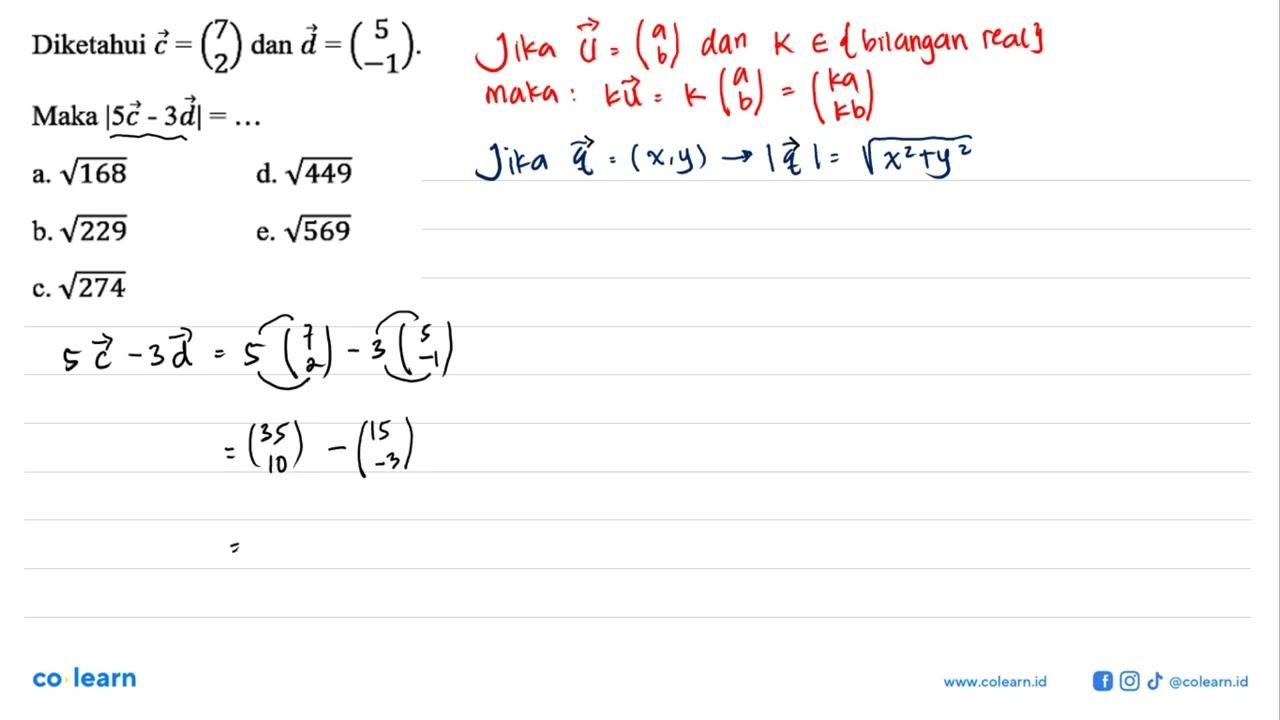 Diketahui c⃗ = (7 2) dan d⃗ = (5 −1).
Maka |5c⃗ - 3d⃗| = …
a. √168 d. √449
b. √229 e. √569
c. √274
Jika u⃗ = (a b) dan K ∈ {bilangan real}
maka : ku⃗ = k (a b) = (ka kb)
Jika q⃗ = (x,y) → |q⃗| = √x²+y²
5c⃗ - 3d⃗ = 5 (7 2) - 3 (5 -1)
= (35 10) - (15 -3)
=
co learn
www.colearn.id @colearn.id